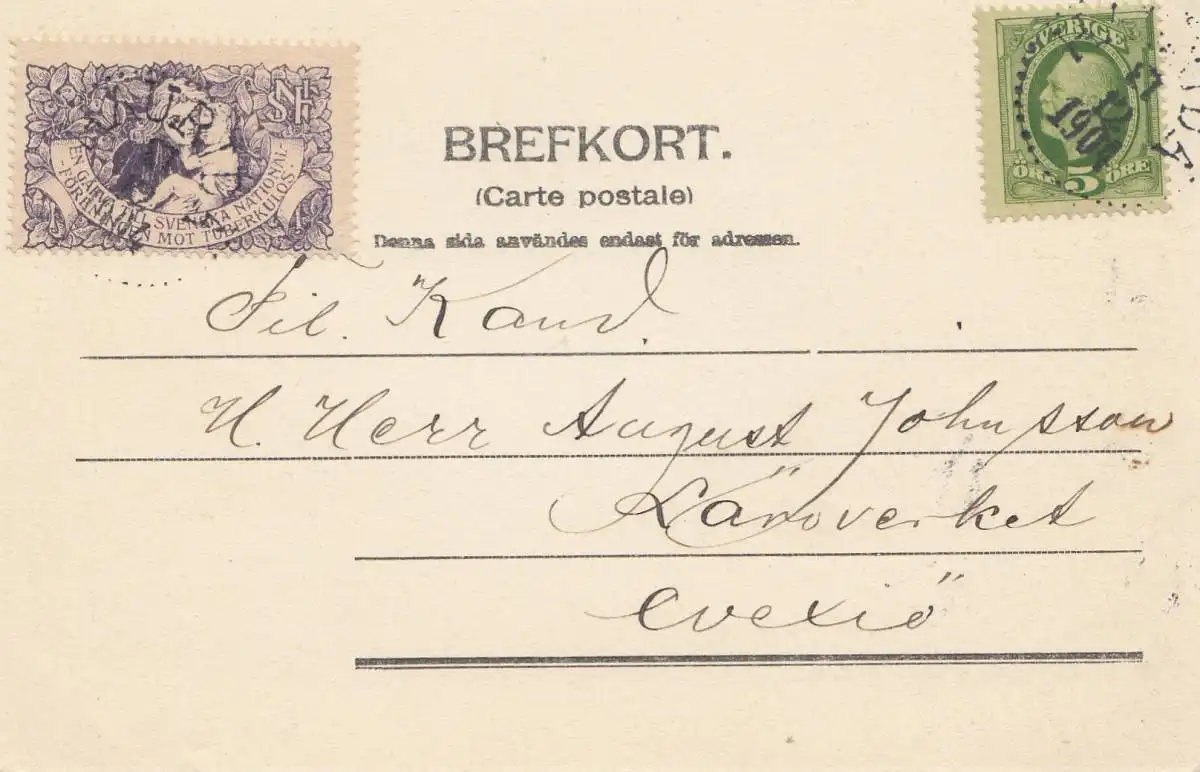 SNF
EN GÅRD TILL SVENSKA NATIONAL-
FÖRENINGEN MOT TUBERKULOS
SVERIGE
5
ÖRE ÖRE
BREFKORT.
(Carte postale)
Denna sida användes endast för adressen.
Fil. Kand.
H. Herr August Johnsson
Läroverket
Wexiö